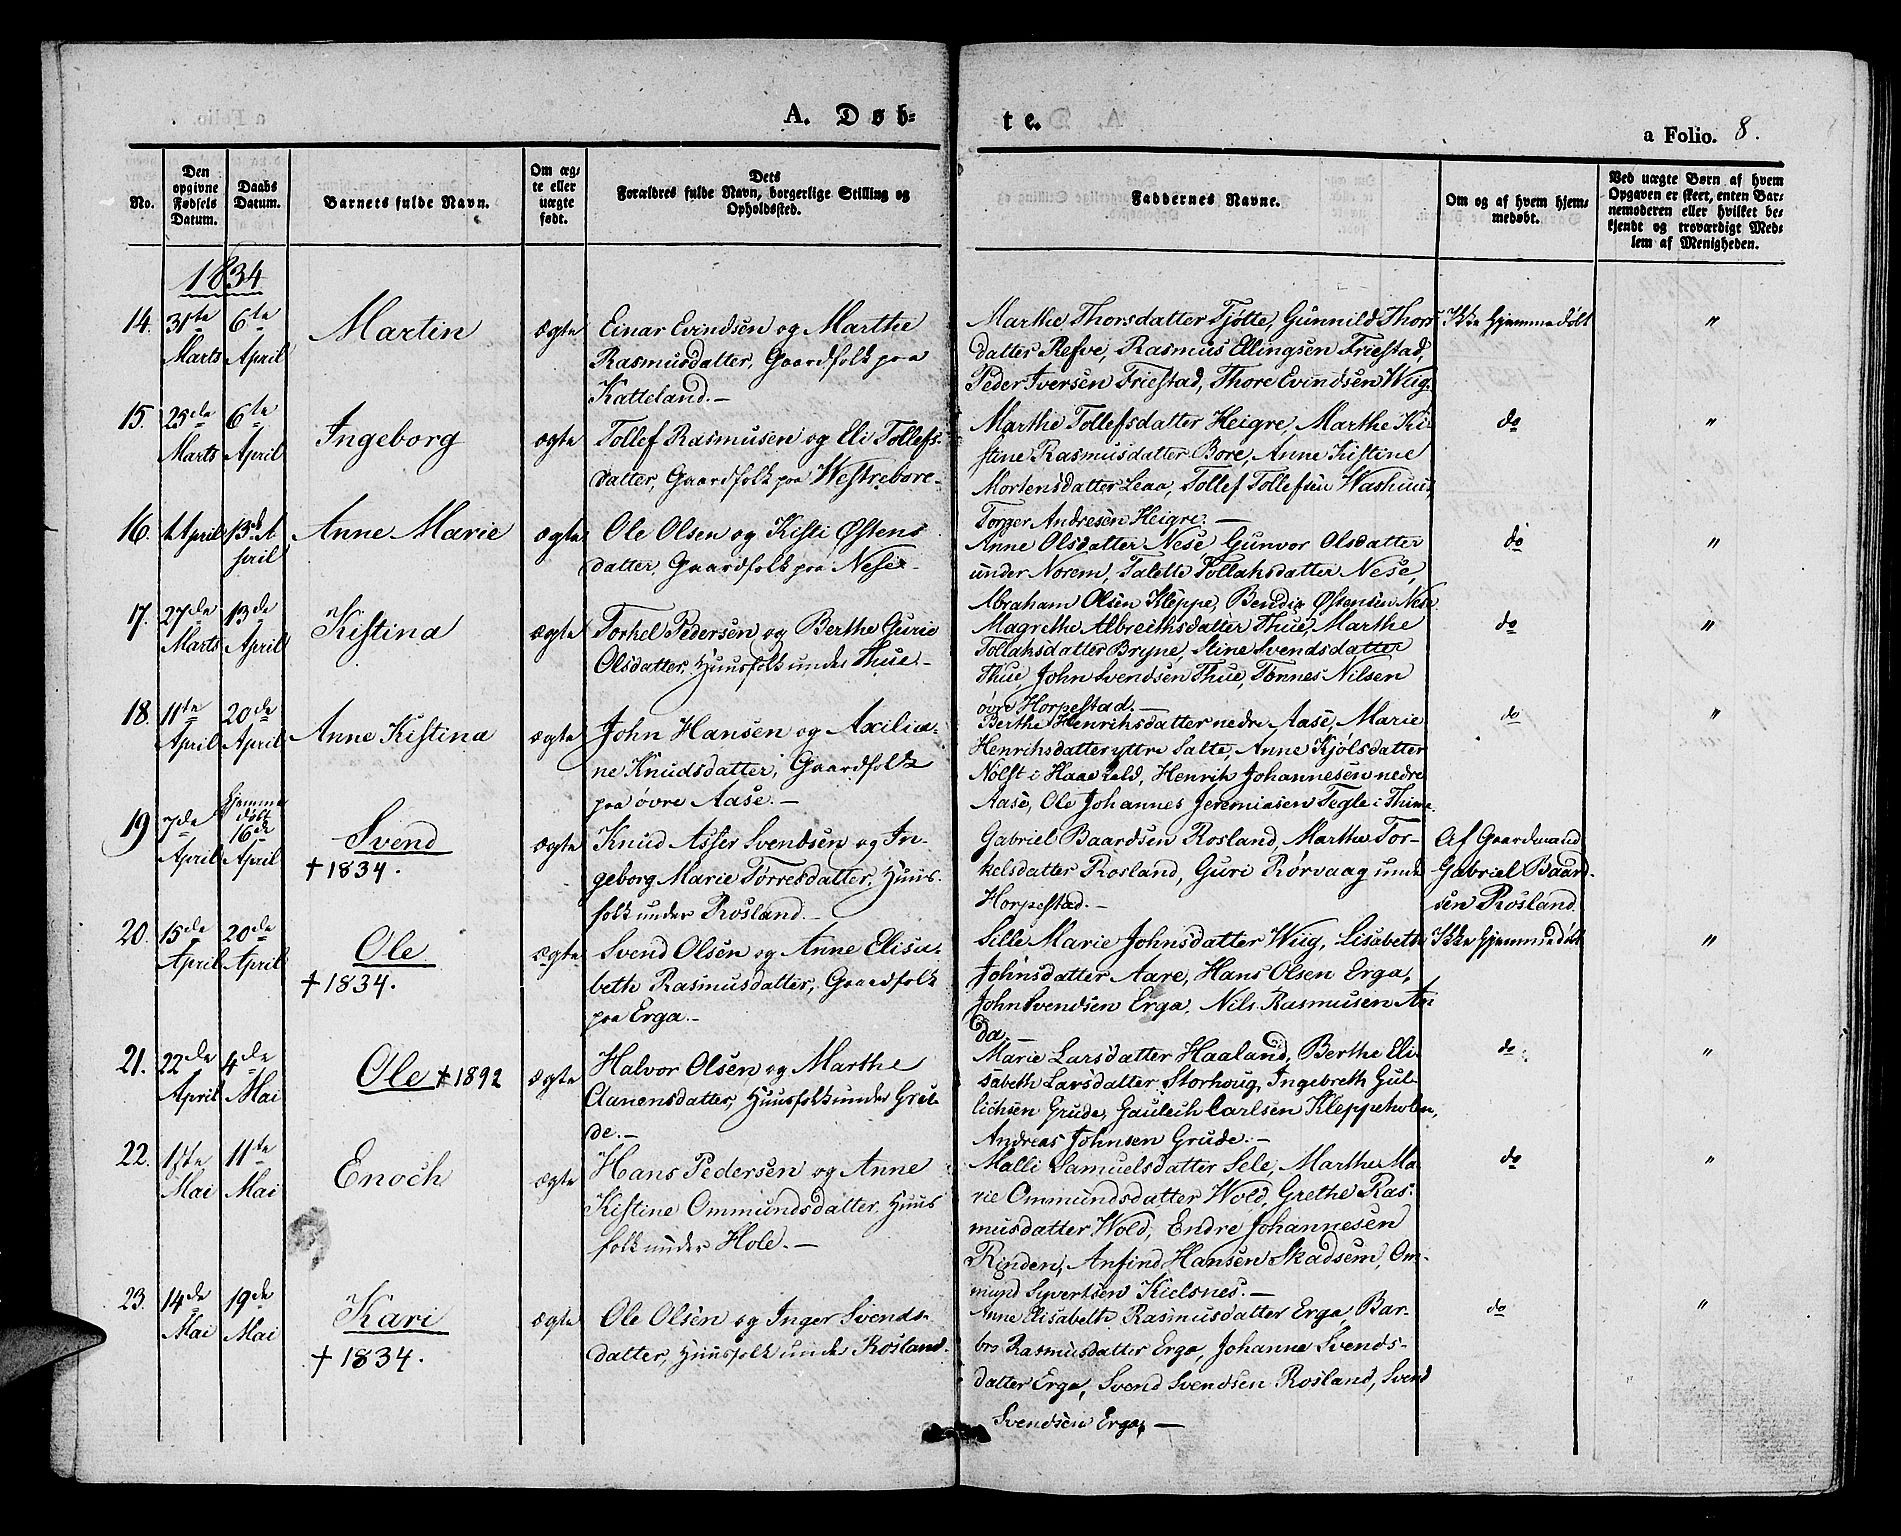 A. Døb-
te.
a Folio. 8.
No.
Den opgivne Fødsels Datum.
Daabs Datum.
Barnets fulde Navn.
Om ægte eller uægte født.
Dets Forældres fulde Navn, borgerlige Stilling og Opholdssted.
Faddernes Navne.
Om og af hvem hjemmedøbt.
Ved uægte Børn af hvem Opgaven er skeet, enten Barnemoderen eller hvilket bekjendt og troværdigt Medlem af Menigheden.
1834
14. 31te Marts 6te April Martin ægte
Einar Evindsen og Marthe
Rasmusdatter, Gaardfolk paa
Katteland.-
Marthe Thorsdatter Tjøtte, Gunnild Thors-
datter Refve, Rasmus Ellingsen Friestad,
Peder Iversen Friestad, Thore Evindsen Wiig.
Ikke hjemmedøbt "
15. 25de Marts 6te April Ingeborg ægte
Tollef Rasmusen og Eli Tollefs-
datter, Gaardfolk paa Westrebore-
Marthe Tollefsdatter Heigre, Marthe Ki-
stine Rasmusdatter Bore, Anne Kistine
Mortensdatter Leaa, Tollef Tollefsen Washuus,
Torger Andresen Heigre.-
do "
16. 1 April 13de April Anne Marie ægte
Ole Olsen og Kisti Østens
datter, Gaardfolk paa Nese.-
Anne Olsdatter Nese, Gunvor Olsdatter
under Norem, Talette Tollahsdatter Nese,
Abraham Olsen Kleppe, Bendix Østensen Nese
do "
17. 27de Marts 13de April Kistina ægte
Torkel Pedersen og Berthe Gurie
Olsdatter, Huusfolk under Thue.-
Magrethe Albreithsdatter Thue, Marthe
Tollahsdatter Bryne, Stine Svendsdatter
Thue John Svendsen Thue, Tønnes Nilsen
øvre Horpestad.-
do "
18. 11te April 20de April Anne Kistina ægte
John Hansen og Axilia-
ne Knudsdatter, Gaardfolk
paa øvre Aase.-
Berthe Henrihsdatter nedre Aase, Marie
Henrihsdatter yttre Salte, Anne Kjølsdatter
Nolst i Haae Sæld, Henrik Johannesen nedre
Aase, Ole Johannes Jeremiasen Tegle i Thime
do "
19 7de April hjemmedøbt 16de April Svend
+ 1834. ægte
Knud Asser Svendsen og In-
geborg Marie Torresdatter, Huus-
folk under Rosland.-
Gabriel Baardsen Rosland, Marthe Tor-
kelsdatter Rosland, Guri Rørvaag unde
Horpestad.-
Af Gaardmand
Gabriel Baard-
sen Rosland.
20. 15de April 20de April Ole
+ 1834. ægte
Svend Olsen og Anne Elisa-
beth Rasmusdatter, Gaardfolk
paa Erga.-
Sille Marie Johnsdatter Wiig, Lisabeth
Johnsdatter Aare, Hans Olsen Erga,
John Svendsen Erga, Nils Rasmusen An
da.-
Ikke hjemmedøbt "
21. 22de April 4de Mai Ole + 1892 ægte
Halvor Olsen og Marthe
Aanensdatter, Huusfolk under Gru-
de.-
Marie Larsdatter Haaland, Berthe Eli-
sabeth Larsdatter Storhoug, Ingebreth Gul-
lichsen Grude, Gauteih Carlsen Kleppeholen,
Andreas Johnsen Grude.-
do "
22. 1ste Mai 11te Mai Enoch ægte
Hans Pedersen og Anne
Kistine Ommundsdatter, Huus
folk under Hole.-
Malli Samuelsdatter Sele, Marthe Ma-
rie Ommundsdatter Wold, Grethe Ras-
musdatter Wold, Endre Johannesen
Rinden, Anfind Hansen Skadsem, Om-
mund Syvertsen Kielsnes.-
do "
23. 14de Mai 19de Mai Kari
+ 1834. ægte
Ole Olsen og Inger Svends-
datter, Huusfolk unde Rosland.
Anne Elisabeth Rasmusdatter Erga, Bar-
bro Rasmusdatter Erga, Johanne Svends-
datter Erga, Svend Svendsen Rosland, Svend
Svendsen Erga.-
do "